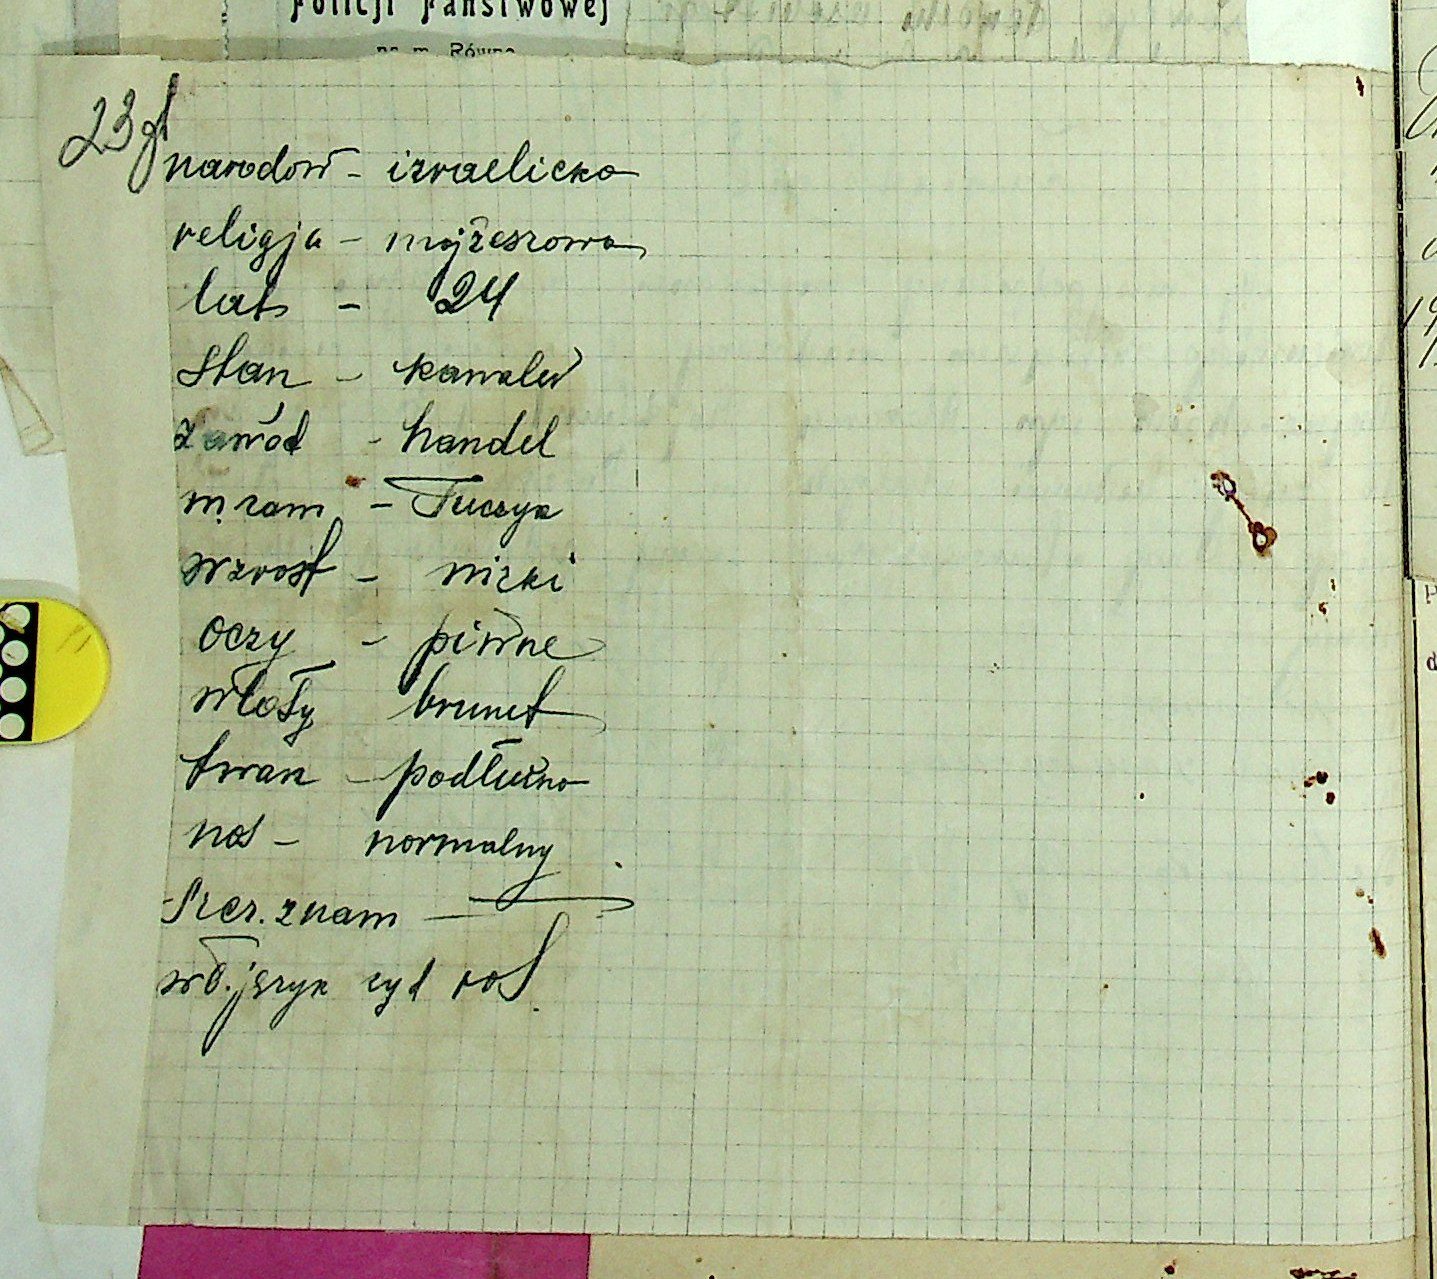 Policji Państwowej
na m. Równe
23 zł
narodow - izraelicka
religja - mojżeszowa
lat - 24
stan - kawaler
zawód - handel
m. zam - Tuczyn
wzrost - nizki
oczy - piwne
włosy brunet
twarz - podłużna
nos - normalny
szcz. znam -
wł. język żyd ros.